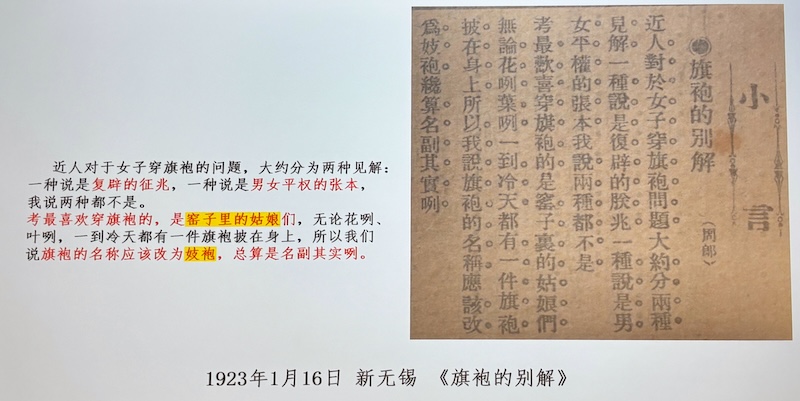 近人对于女子穿旗袍的问题，大约分为两种见解：
一种说是复辟的征兆，一种说是男女平权的张本，
我说两种都不是。
考最喜欢穿旗袍的，是窑子里的姑娘们，无论花咧、
叶咧，一到冷天都有一件旗袍披在身上，所以我们
说旗袍的名称应该改为妓袍，总算是名副其实咧。
小言
旗袍的别解（周郎）
近人對於女子穿旗袍問題大約分兩種
見解一種說是復辟的朕兆一種說是男
女平權的張本我說兩種都不是
考最歡喜穿旗袍的是窰子裏的姑娘們
無論花咧葉咧一到冷天都有一件旗袍
披在身上所以我說旗袍的名稱應該改
爲妓袍纔算名副其實咧
1923年1月16日 新无锡 《旗袍的别解》